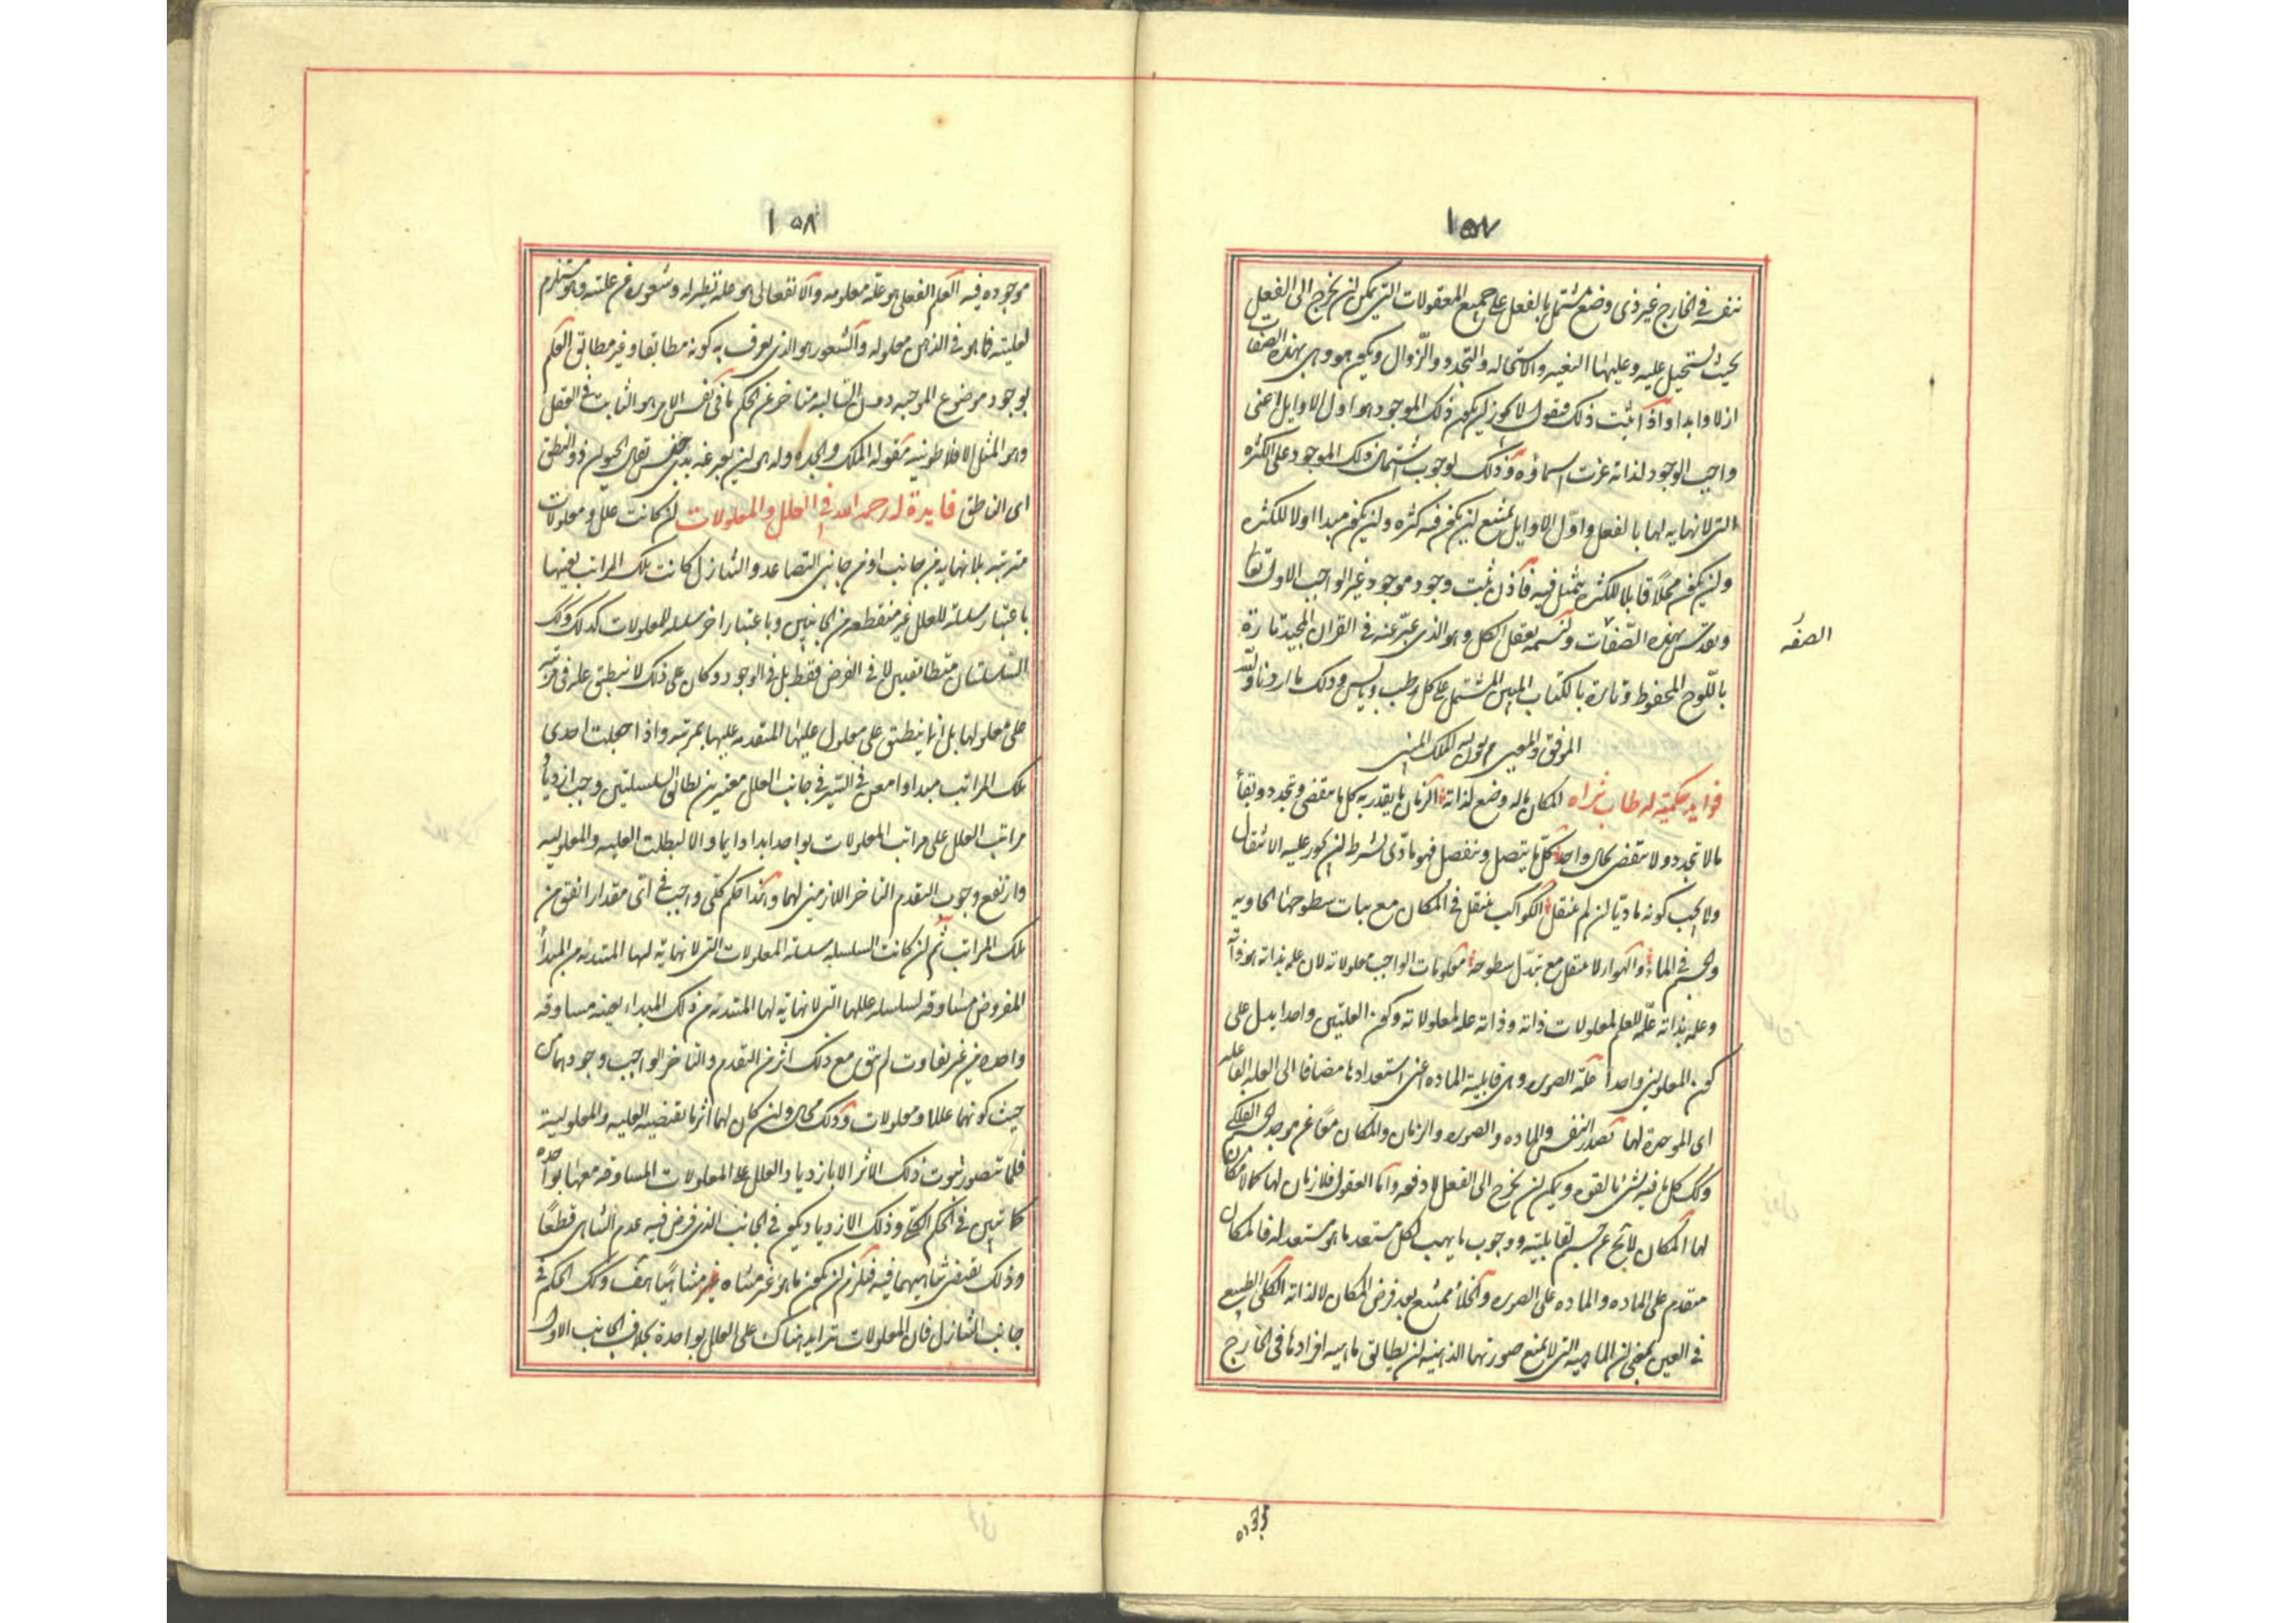 ١٥٧
بنفسه في الخارج غير ذي وضع مشتمل بالفعل على جميع المعقولات التي يمكن ان يخرج الى الفعل
بحيث يستحيل عليه وعليها التغير والاستحاله والتجدد والزوال ويكون هو وهي بهذه الصفات
ازلا وابدا واذا اثبت ذلك فنقول لا يجوز ان يكون ذلك الموجود هو اول الاوايل اعنى
واجب الوجود لذاته عزت اسماؤه وذلك لوجوب اشتمال ذلك الموجود على الكثره
التي لا نهايه لها بالفعل واول الاوايل يمتنع ان يكون فيه كثره وان يكون مبدا اولا للكثره
وان يكون محلا قابلا لكثره يتمثل فيه فاذن ثبت وجود موجود غير الواجب الاول تعا
وتقدس بهذه الصفات ونسميه بعقل الكل وهو الذي عبر عنه في القران المجيد تارة
الصفه
باللوح المحفوظ وتارة بالكتاب المبين المشتمل على كل رطب ويابس وذلك ما اردناه والله
الموفق والمعين الملك المبين
فوايد حكمية له طاب ثراه المكان ما له وضع لذاته الزمان ما يقدر به كل ما ينقضي ويتجدد وبقاء
ما لا تجدد ولا ينقضي بحال واحد كل ما يتصل وينفصل فهو مادى بشرط ان يجوز عليه الانتقال
ولا يجب كونه ماديا ان لم ينتقل الكواكب ينتقل في المكان مع ثبات سطوحها الحاويه
والجسم في الماء والهواء لا ينتقل مع تبدل سطوحه معلومات الواجب معلولاته لان علمه بذاته هو ذاته
وعلمه بذاته علة للعلم لمعلولات ذاته وذاته علة لمعلولاته وكون العلتين واحدا يدل على
كون المعلولين واحدا علة الصوره وهي قابلية الماده اعنى استعدادها مضافا الى العله الفاعله
اى الموجدة لها تصدر النفس والماده والصوره والزمان والمكان معا عن موجد الجسم الفلكى
وكك كل ما فيه شئ بالقوه ويمكن ان يخرج الى الفعل لا دفعه واما العقول فلا زمان لها كما لا مكان
لها المكان لا يخ عن جسم لقابليته ووجوب ما يهب لكل مستعد ما هو مستعد له فالمكان
متقدم على الماده والماده على الصوره والخلاء ممتنع بعد فرض المكان لا لذاته الكلى الطبيعى
في العين بمعنى ان الماهيه التي لا يمنع صورتها الذهنيه ان يطابق ماهيه افرادها في الخارج
موجوده
١٥٨
موجوده فيه العلم الفعلى هو علة معلومه والانفعالى هو علة نظيراه وشعوره عن علته وهو مستلزم
لعليته فما هو في الذهن معلوله والشعور هو الذي يعرف به كونه مطابقا وغير مطابق العلم
بوجود موضوع الموجبه دون السالبه متاخر عن الحكم ما في نفس الامر هو الثابت في العقل
وهو المثل الافلاطونيه مقوله الملك والجده وله هو ان يعبر عنه بذي جنس تعالى الحيوان ذو النطق
اى الناطق فايدة له رحمه الله في العلل والمعلولات ان كانت علل ومعلولات
مترتبه بلا نهايه من جانب او من جانبى التصاعد والتنازل كانت تلك المراتب بعينها
باعتبار سلسله للعلل غير منقطعه من الجانبين وباعتبار اخر سلسله للمعلولات كذلك وتلك
السلسلتان متطابقتين لا في الفرض فقط بل في الوجود وكان على ذلك لا ينطبق علة في مرتبه
على معلولها بل انما ينطبق على معلول علتها المتقدمه عليها بمرتبه واذا جعلت احدى
تلك المراتب مبدا وامعن في السير في جانب العلل معتبرين تطابق السلسلتين وجب ازدياد
مراتب العلل على مراتب المعلولات بواحد ابدا دايما والا لبطلت العليه والمعلوليه
وارتفع وجوب التقدم التاخر اللازمين لهما وهذا حكم كلى واجب في اى مقدار اتفق من
تلك المراتب ثم ان كانت السلسله سلسلة المعلولات التي لا نهاية لها المبتدئه من المبدأ
المفروض مساوقه لسلسله عللها التي لا نهاية لها المبتدئه من ذلك المبداء بعينه مساوقه
واحده من غير تفاوت لم يبق مع ذلك اثر من التقدم والتاخر الواجب وجودهما من
حيث كونهما عللا ومعلولات وذلك محال وان كان لهما اثر ما يقتضيه العليه والمعلوليه
فلما يتصور ثبوت ذلك الاثر الا بازدياد العلل على المعلولات المساوقه معها بواحده
كما تبين في الحكم الكلى وذلك الازدياد يكون في الجانب الذي فرض فيه عدم التناهى قطعا
وذلك يقتضى تناهيهما فيه فيلزم ان يكون ما هو غير متناه متناهيا هف وكك الحكم في
جانب التنازل فان المعلولات تتزايد هناك على العلل بواحدة بخلاف الجانب الاول